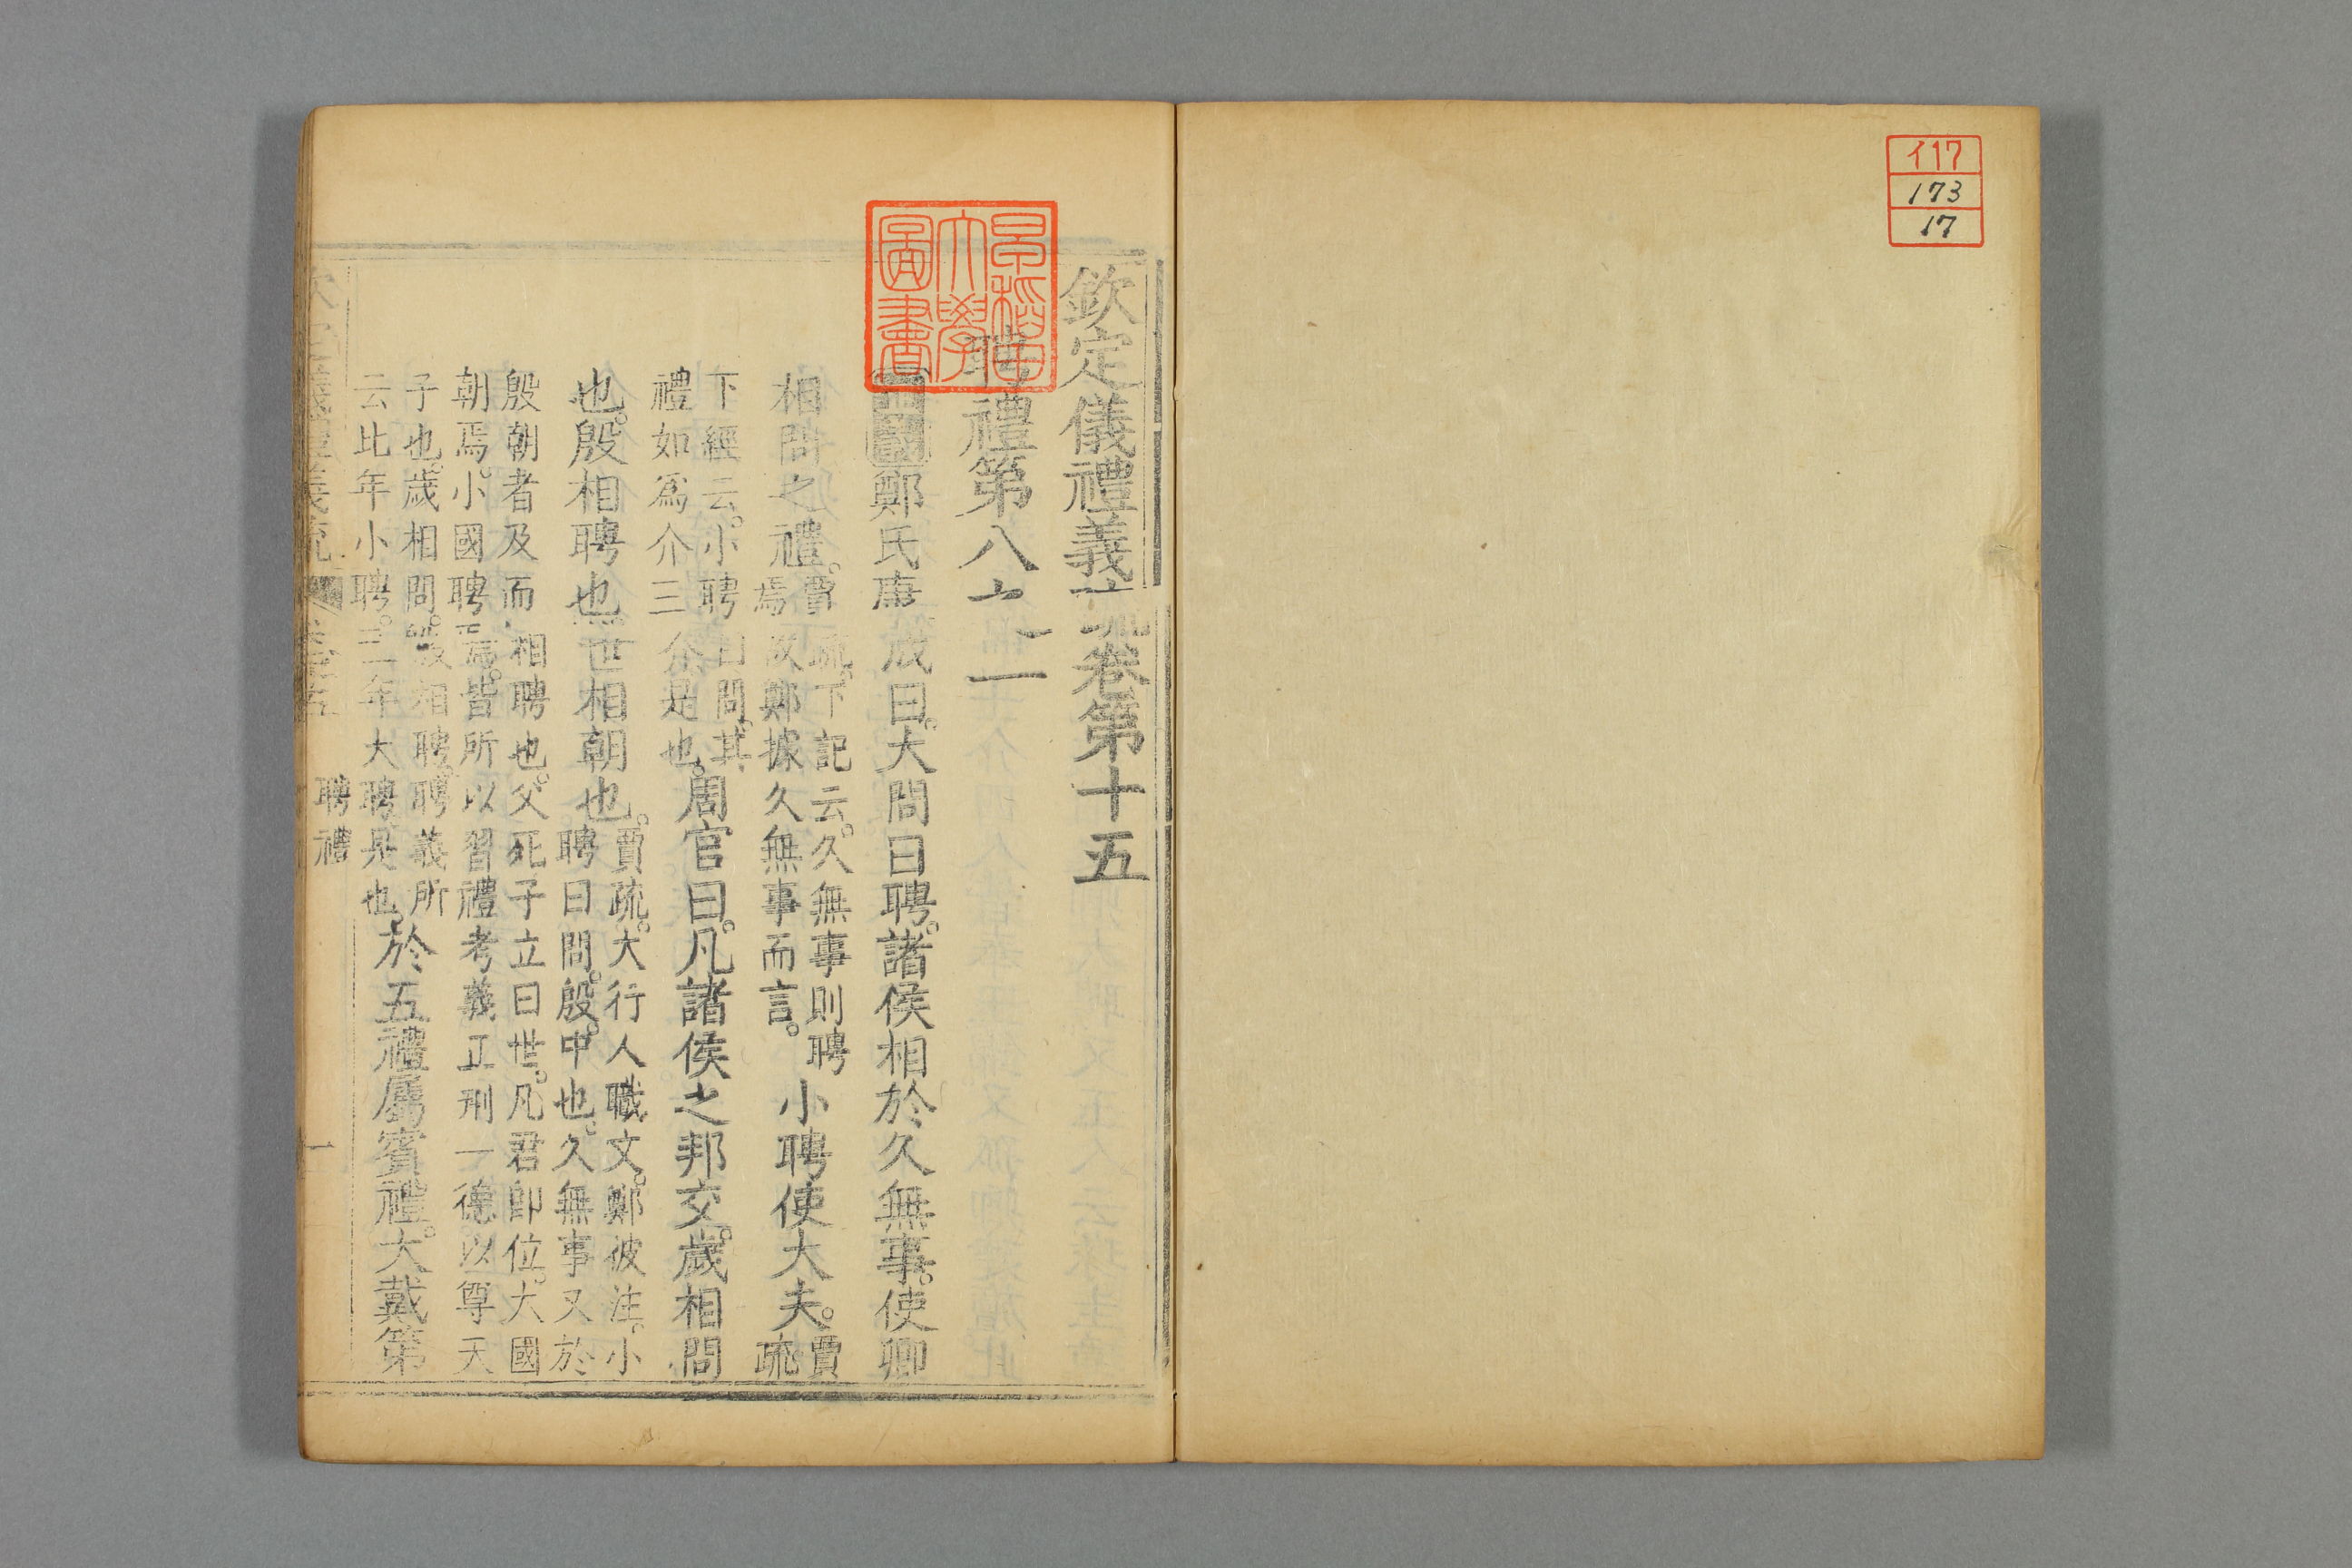 イ17
173
17
欽定儀禮義疏卷第十五
聘禮第八之一
鄭氏康成曰。大問曰聘。諸侯相於久無事。使卿
相問之禮。賈疏。下記云。久無事則聘
焉。故鄭據久無事而言。小聘使大夫。賈
疏
下經云。小聘曰問。其
禮如爲介三介是也。周官曰。凡諸侯之邦交。歲相問
也。殷相聘也。世相朝也。賈疏。大行人職文。鄭彼注。小
聘曰問。殷。中也。久無事又於
殷朝者及而相聘也。父死子立曰世。凡君即位。大國
朝焉。小國聘焉。皆所以習禮考義正刑一德以尊天
子也。歲相問。殷相聘。聘義所
云比年小聘。三年大聘是也。於五禮屬賓禮。大戴第
欽定儀禮義疏
聘禮
一
早稻田大學圖書